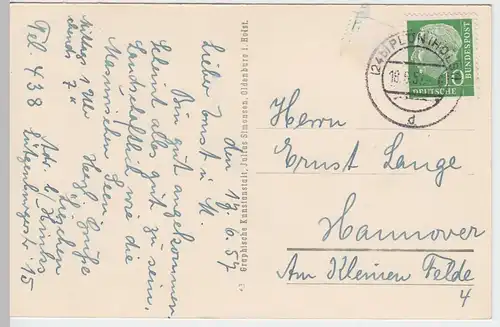 den 19. 6. 57
Lieber Ernst u. M.
Bin gut angekommen.
Scheint alles gut zu sein,
Landschaftlich wie die
Masurischen Seen.
Herzl. Grüße
Lieschen
Mittags 1 Uhr
abends 7 "
Tel 438
Adr. b/ Hinrichs
Lütjenburgerstr 15
Graphische Kunstanstalt, Julius Simonsen, Oldenburg i. Holst.
(24b) PLÖN (HOLST)
19.6.57
d
10
DEUTSCHE
BUNDESPOST
Herrn
Ernst Lange
Hannover
Am Kleinen Felde
4